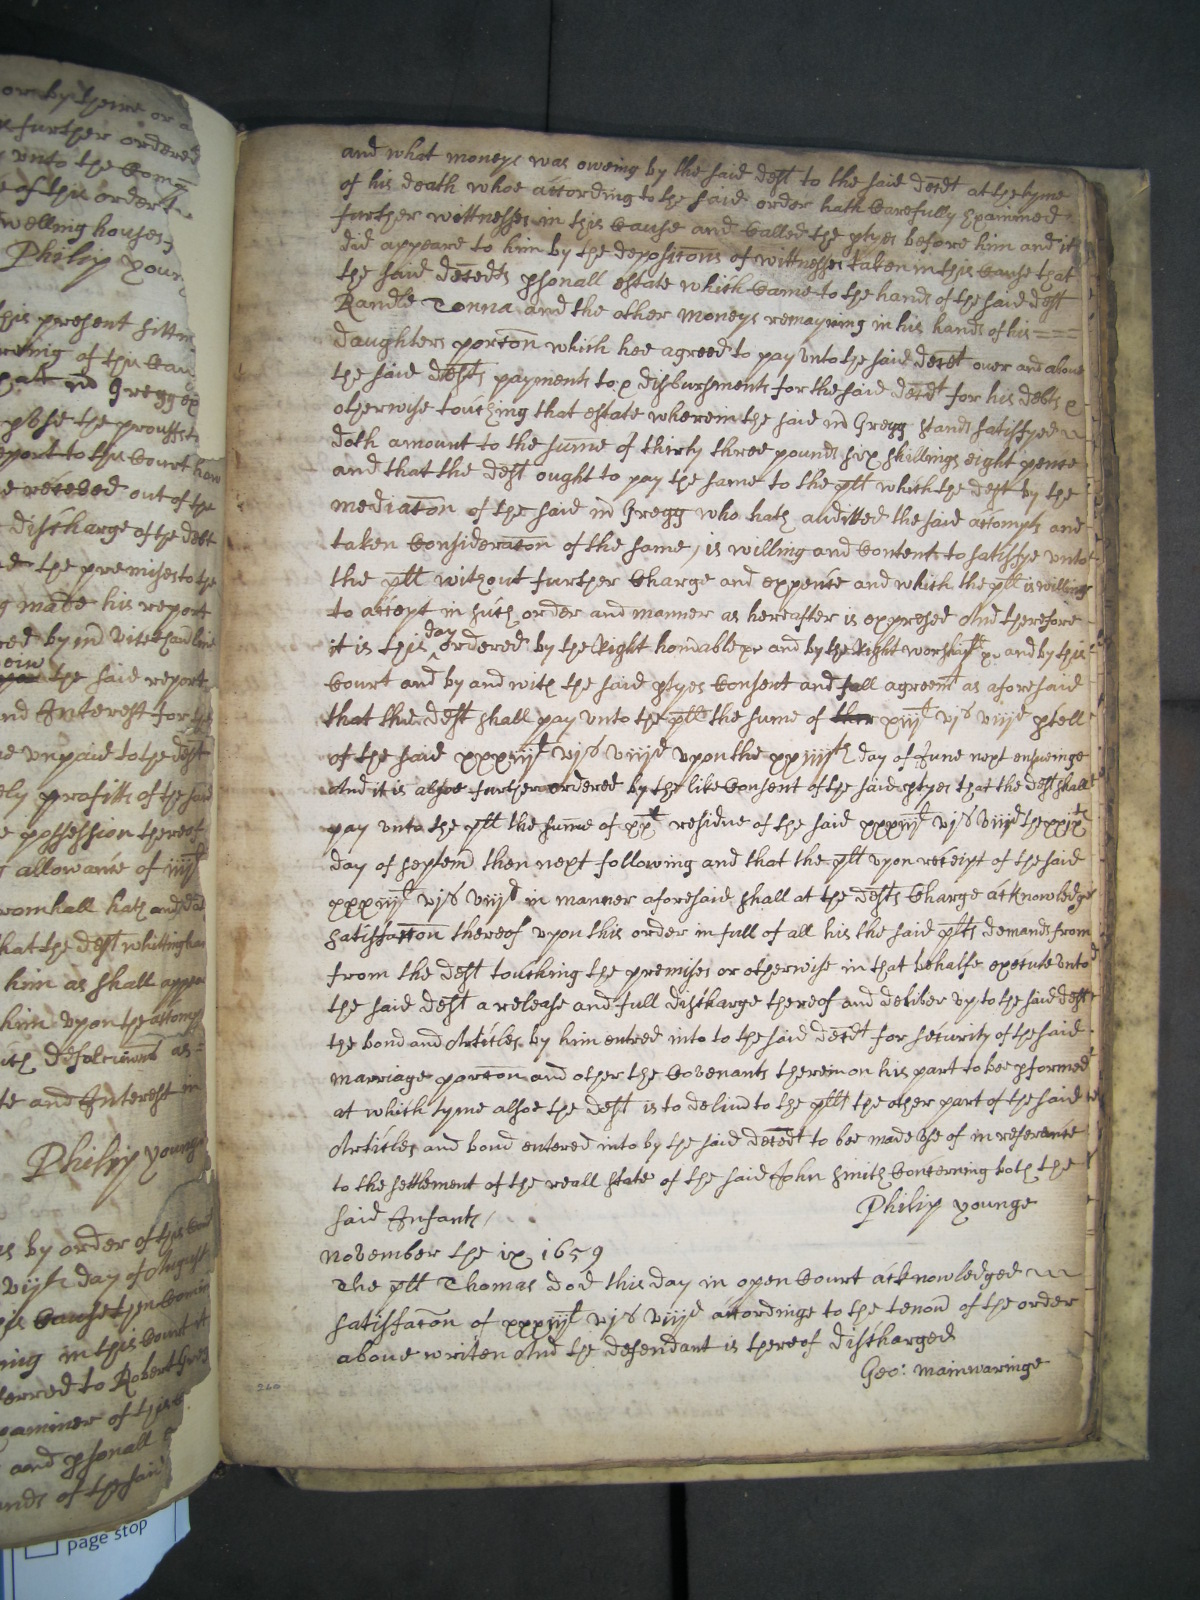 or by theire or a
further ordered
vnto the Comp
e of this order
welling houses
Philip youn
his present sittin
of this Cau
Gregg ex
the prouffitts
eport to this Court how
e receved out of the
discharge of the debt
ed the premises to the
made his report
red by mr
the said report
nd Interest for the
e unpaid to the deft
ely profitts of the said
e possession thereof
allowance of iiij
romhall hath
hat the deft Whittingham
him as shall appe
him vpon the accompt
ith defalcacons as
te and Interest in
Philip younge
as by order of this Court
vijth day of August
his cause then
ing in this Court
ferred to Robert Greg
xaminer of this
and psonall
ands of the said
page stop
and what moneys was oweing by the said deft to the said deced't at the tyme
of his death whoe according to the said order hath Carefully Examined
further wittnesses in this Cause and Called the ptyes before him and it
did appeare to him by the deposicons of wittnesses taken in this Cause that
the said deced'ts psonall estate which Came to the hands of the said deft
Randle Tonna and the other moneys remayning in his hands of his ===
daughters porcon which hee agreed to pay vnto the said deced't over and aboue
the said defts payments to & disbursments for the said deced't for his debts &
otherwise touching that estate wherein the said mr Gregg stands satisfyed
doth amount to the sume of thirty three pounds six shillings eight pence
and that the deft ought to pay the same to the plt which the deft by the
mediacon of the said mr Gregg who hath auditted the said accompts and
taken Consideracon of the same, is willing and Content to satisfye vnto
the plt without further Charge and expence and which the plt is willing
to accept in such order and manner as hereafter is expressed And therefore
it is this day ordered by the Right honoable &c and by the Right worshipll &c and by this
Court and by and with the said ptyes Consent and full agreemt as aforesaid
that the deft shall pay vnto the plt the sume of xiijl vjs viijd pcell
of the said xxxiijl vjs viijd vpon the xxiiijth day of June next ensueinge
And it is alsoe further ordered by the like Consent of the said ptyes that the deft shall
pay vnto the plt the sume of xxl residue of the said xxxiijl vjs viijd the xxixth
day of Septem then next following and that the plt vpon receipt of the said
xxxiijl vjs viijd in manner aforesaid shall at the defts Charge acknowledge
satisfaccon thereof vpon this order in full of all his the said plts demands from
from the deft touching the premises or otherwise in that behalfe execute vnto
the said deft a release and full discharge thereof and deliver vp to the said deft
the bond and Articles by him entred into to the said deced't for security of the said
marriage porcon and other the Covenants therein on his part to bee pformed
at which tyme alsoe the deft is to deliu to the plt the other part of the said
Articles and bond entered into by the said deced't to bee made vse of in reference
to the settlement of the reall state of the said John Smith Concerning both the
said Infants / Philip younge
November the ix 1659
The plt Thomas Dod this day in open Court acknowledged
satisfacon of xxxiijl vjs viijd accordinge to the tenor of the order
aboue writen And the defendant is thereof discharged
Geo: mainwaringe
260